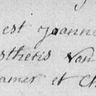 est joanne
stheris van
amer et ch